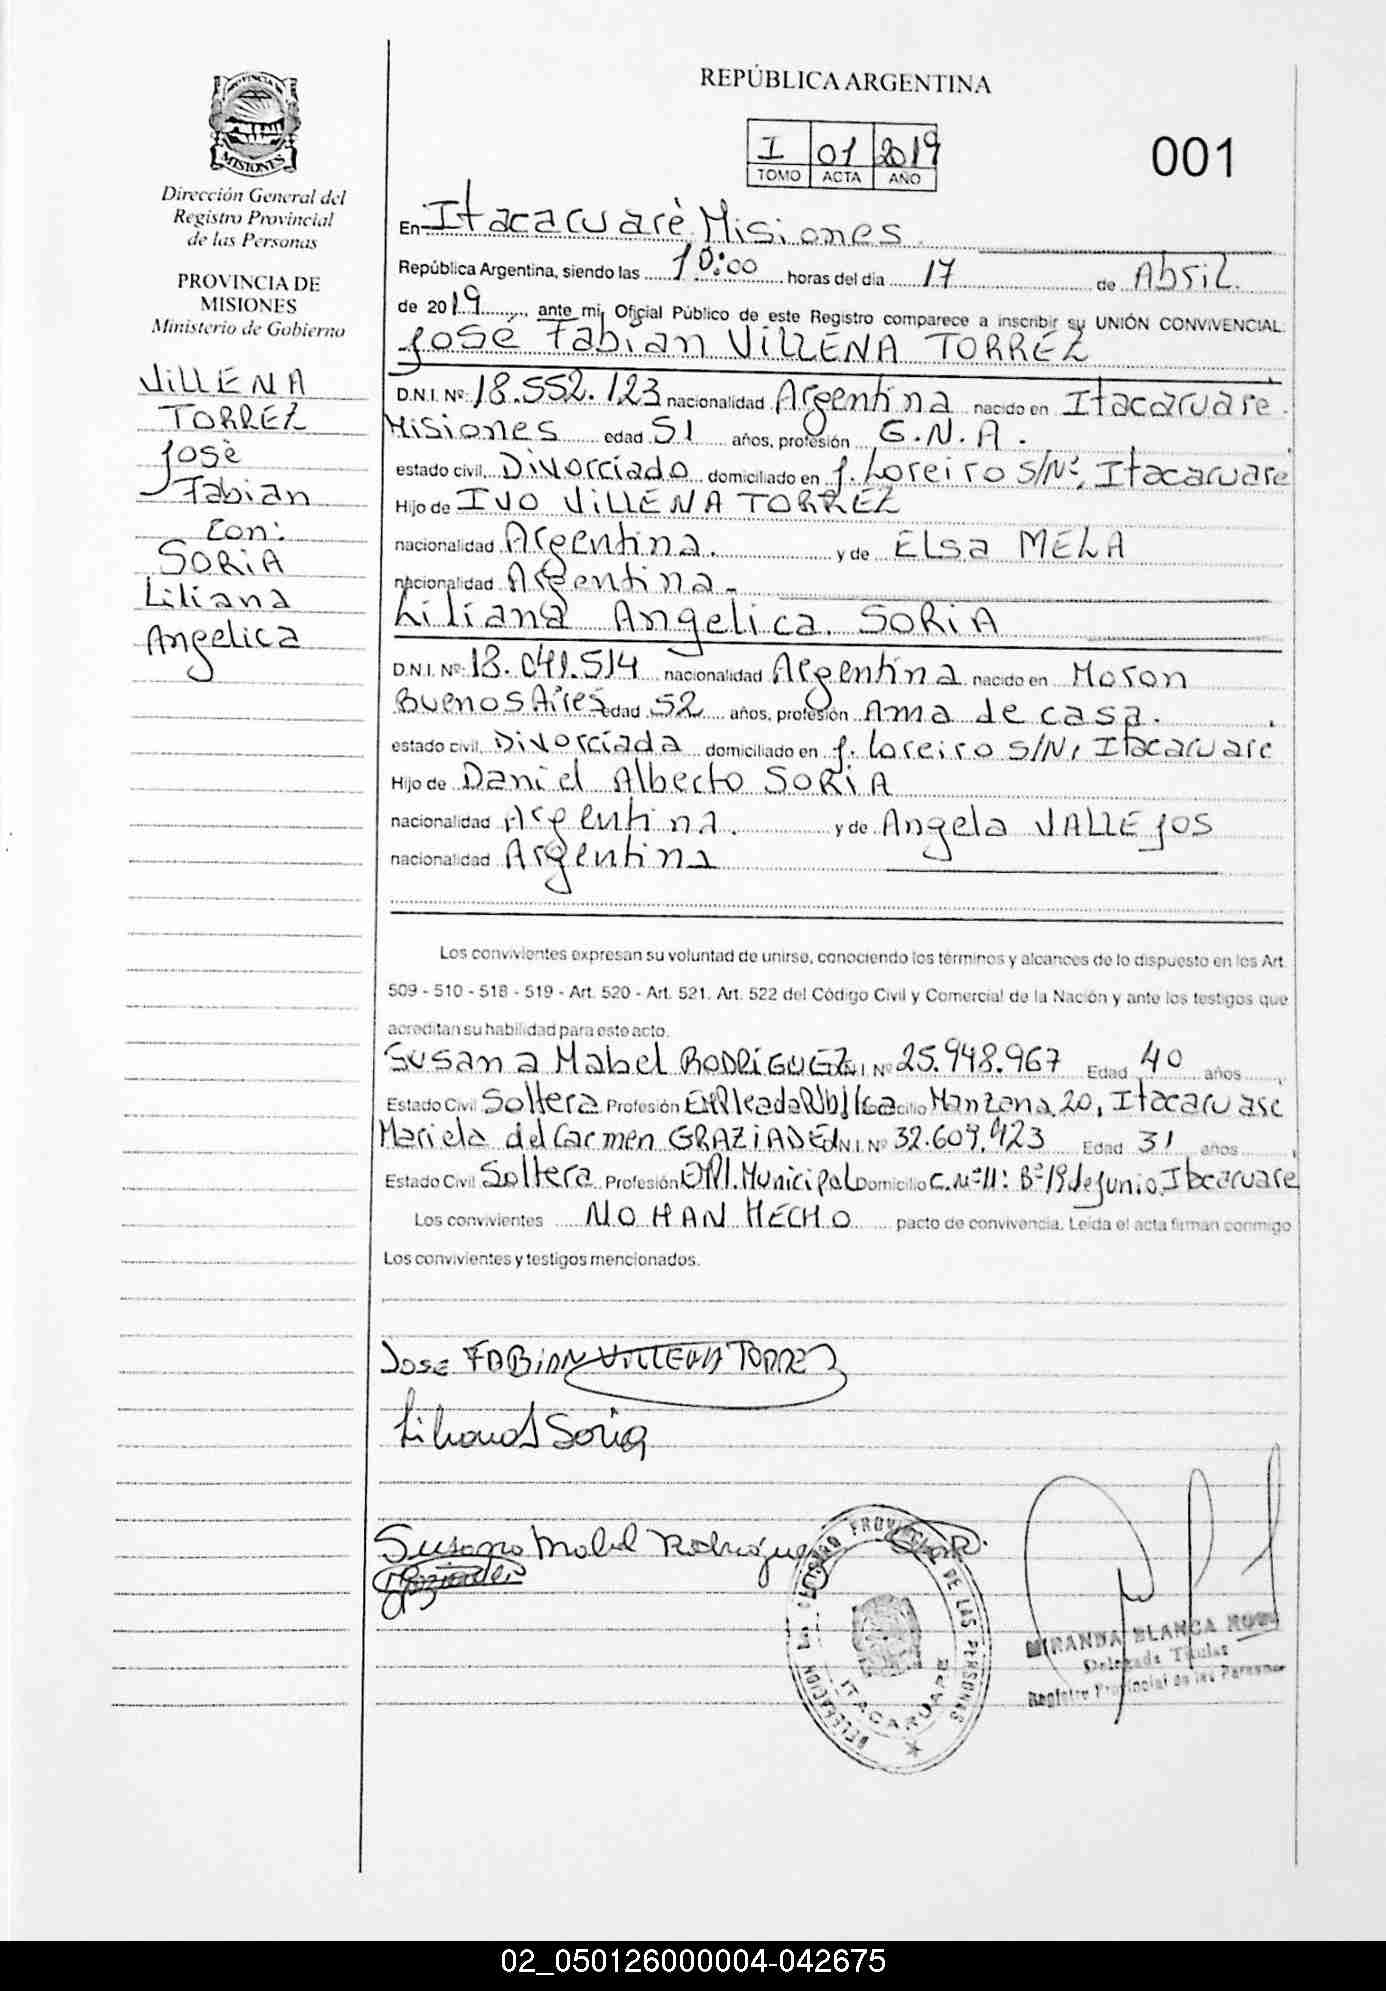 PROVINCIA DE
MISIONES
Dirección General del
Registro Provincial
de las Personas
PROVINCIA DE
MISIONES
Ministerio de Gobierno
VILLENA
TORREZ
Josè
Fabian
con:
SORIA
Liliana
Angelica
REPÚBLICA ARGENTINA
I 01 2019
TOMO ACTA AÑO
001
En Itacaruarè Misiones
República Argentina, siendo las 10:00 horas del día 17 de Abril.
de 2019, ante mi, Oficial Público de este Registro comparece a inscribir su UNIÓN CONVIVENCIAL:
Josè Fabian VILLENA TORREZ
D.N.I. Nº: 18.552.123 nacionalidad Argentina nacido en Itacaruare.
Misiones edad 51 años, profesión G.N.A.
estado civil, Divorciado domiciliado en J. Loreiro S/Nº, Itacaruare
Hijo de IVO VILLENA TORREZ
nacionalidad Argentina. y de Elsa MEZA
nacionalidad Argentina.
Liliana Angelica SORIA
D.N.I. Nº: 18.041.514 nacionalidad Argentina nacido en Moron
Buenos Aires edad 52 años, profesión Ama de casa.
estado civil, Divorciada domiciliado en J. Loreiro S/N, Itacaruare
Hijo de Daniel Alberto SORIA
nacionalidad Argentina. y de Angela VALLEJOS
nacionalidad Argentina
Los convivientes expresan su voluntad de unirse, conociendo los términos y alcances de lo dispuesto en los Art.
509 - 510 - 518 - 519 - Art. 520 - Art. 521. Art. 522 del Código Civil y Comercial de la Nación y ante los testigos que
acreditan su habilidad para este acto.
Susana Mabel RODRIGUEZ D.N.I. Nº 25.948.967 Edad 40 años
Estado Civil Soltera Profesión Empleada Publica Domicilio Manzana 20, Itacaruare
Mariela del Carmen GRAZIADEI D.N.I. Nº 32.609.423 Edad 31 años
Estado Civil Soltera Profesión Municipal Domicilio C. Nº 11: Bº 19 de Junio, Itacaruare
Los convivientes NO HAN HECHO pacto de convivencia. Leída el acta firman conmigo
Los convivientes y testigos mencionados.
JOSE FABIAN VILLENA TORREZ
Liliana Soria
Susana Mabel Rodriguez
DELEGACION REGISTRO PROVINCIAL DE LAS PERSONAS
ITACARUARE
MIRANDA BLANCA
Delegada Titular
Registro Provincial de las Personas
02_050126000004-042675